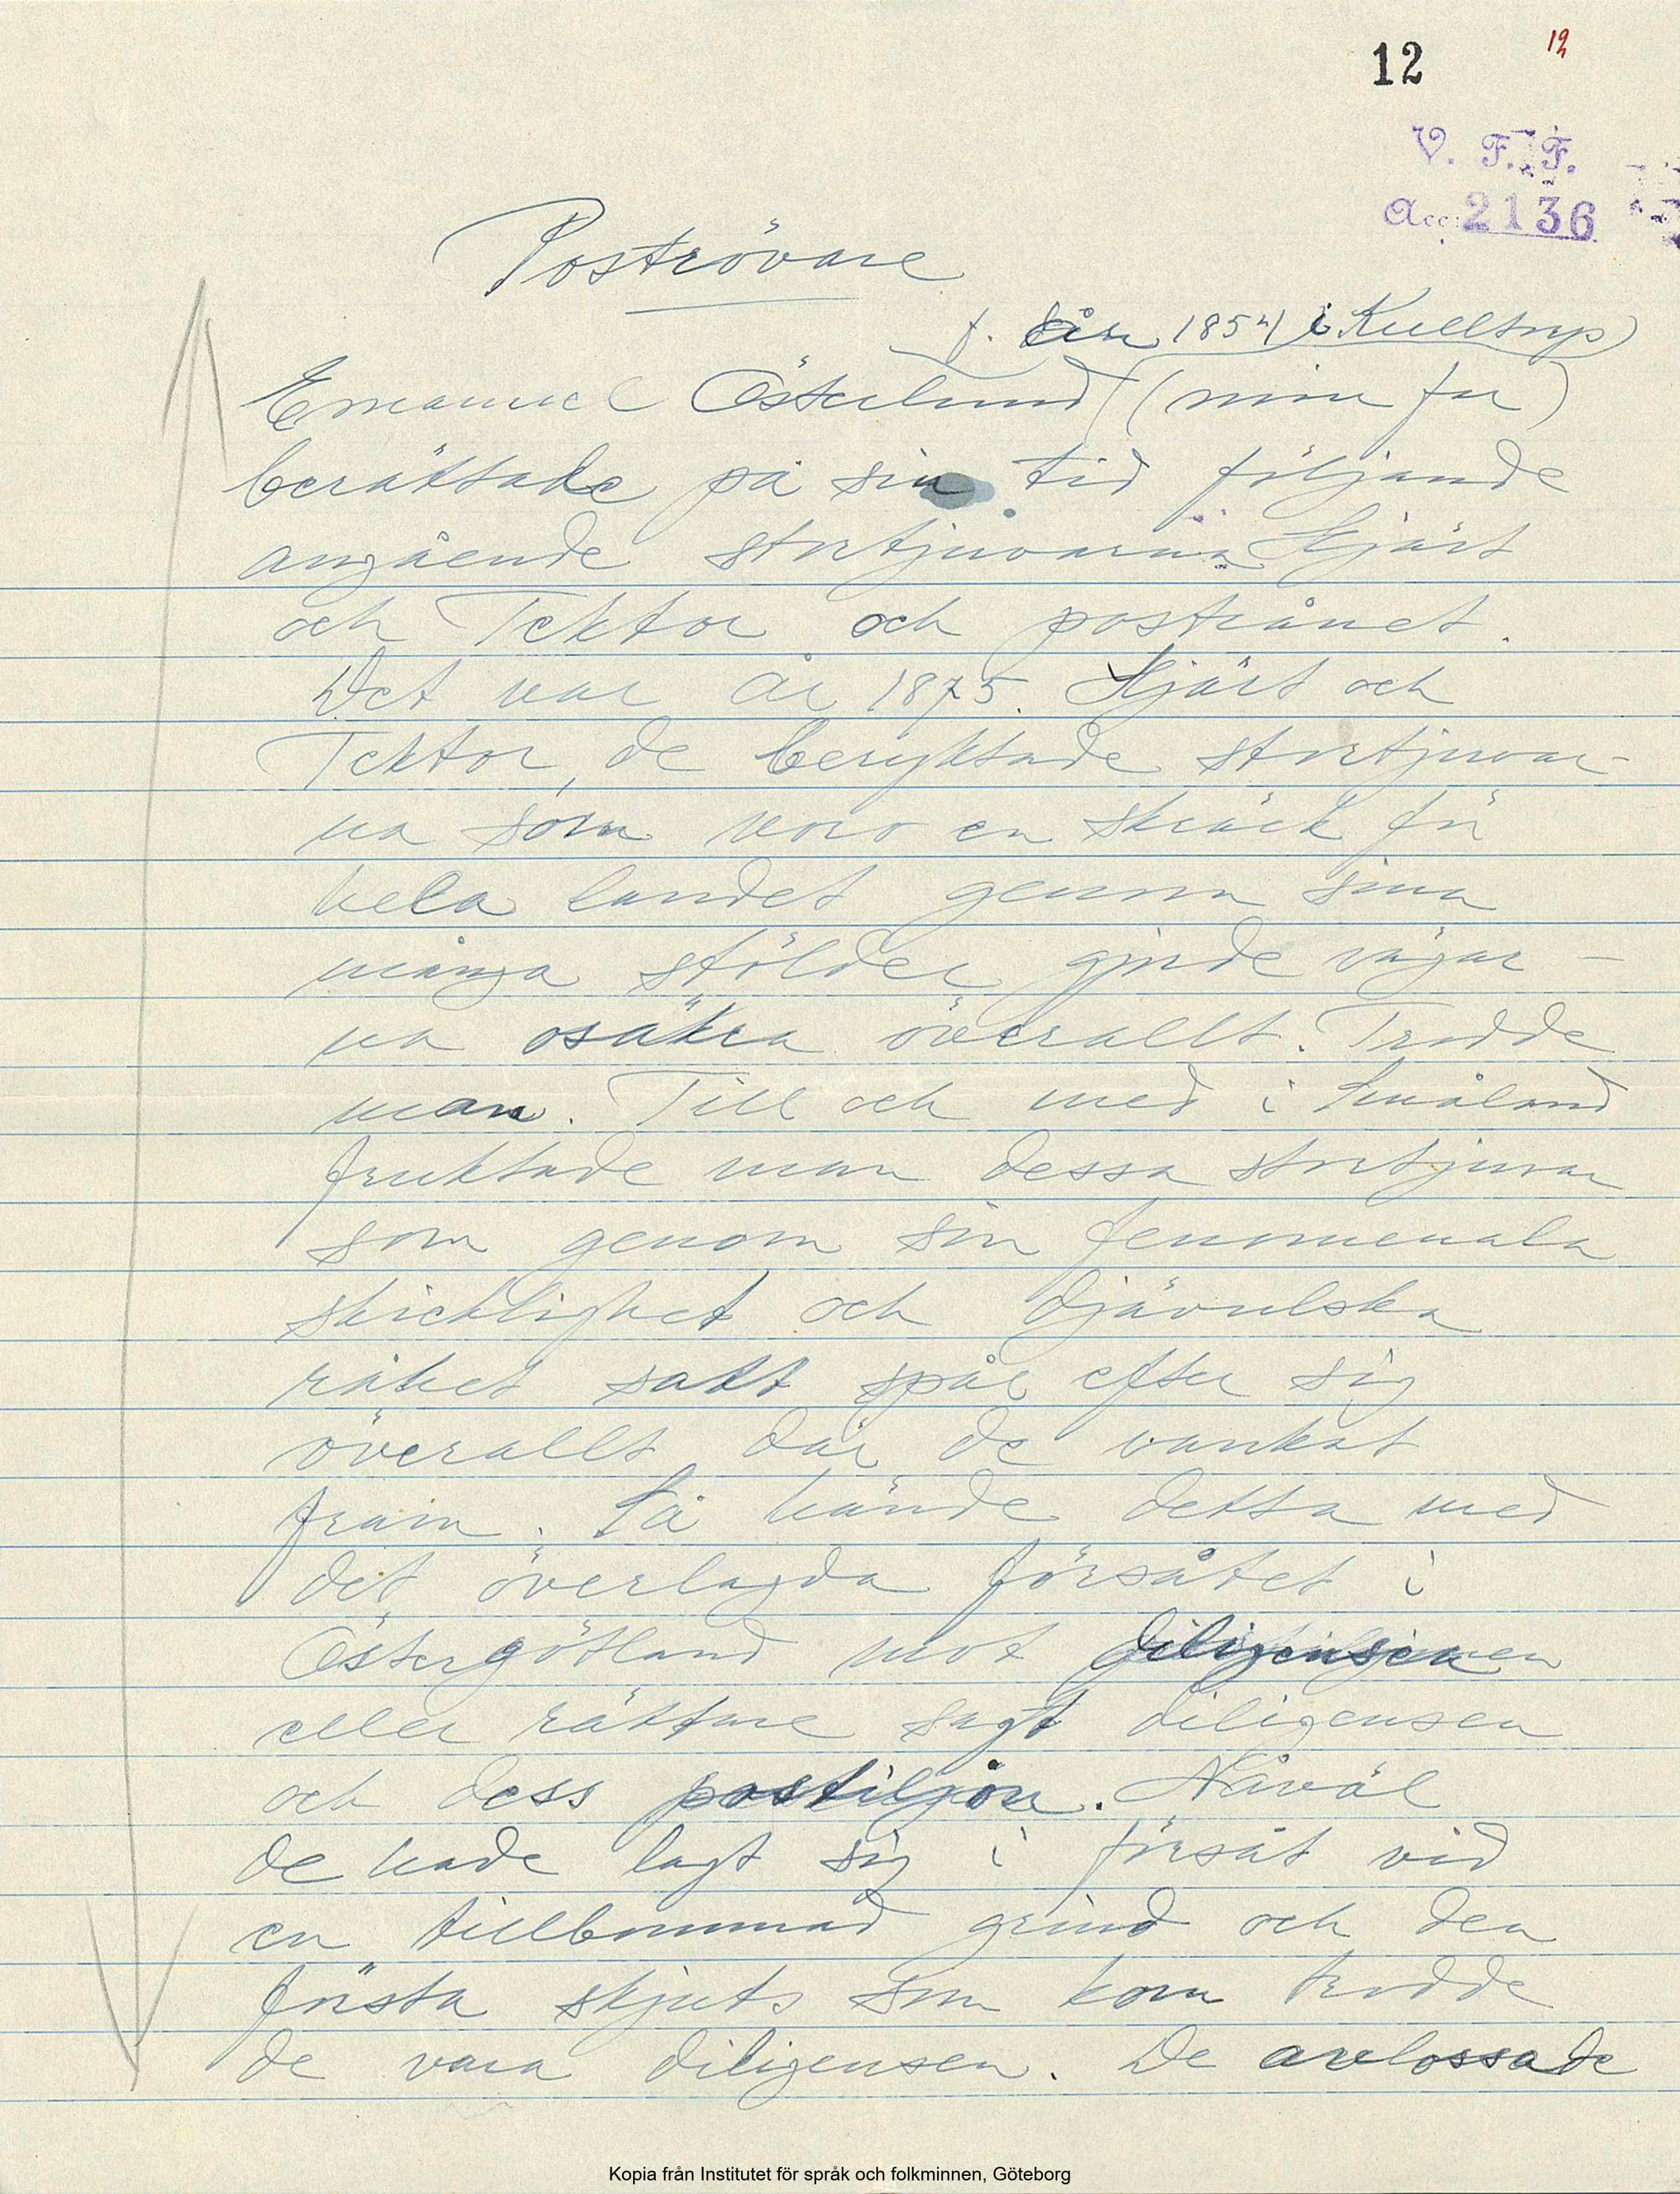 12
12
V. F. F.
Acc: 2136
Poströvare
f. år 1854 i Kulltorp
Emanuel Österlund (min far)
berättade på sin tid följande
angående stortjuvarna Hjärt
och Tektor och postrånet.
Det var år 1875. Hjärt och
Tektor, de beryktade stortjuvar-
na som voro en skräck för
hela landet genom sina
många stölder gjorde vägar-
na osäkra överallt. Trodde
man. Till och med i Småland
fruktade man dessa stortjuvar
som genom sin fenomenala
skicklighet och djävulska
råhet satt spår efter sig
överallt där de vankat
fram. Så hände detta med
det överlagda försåtet i
Östergötland mot diligensen
eller rättare sagt diligensen
och dess postiljon. Nåväl
de hade lagt sig i försåt vid
en tillbommad grind och den
första skjuts som kom trodde
de vara diligensen. De avlossade
Kopia från Institutet för språk och folkminnen, Göteborg